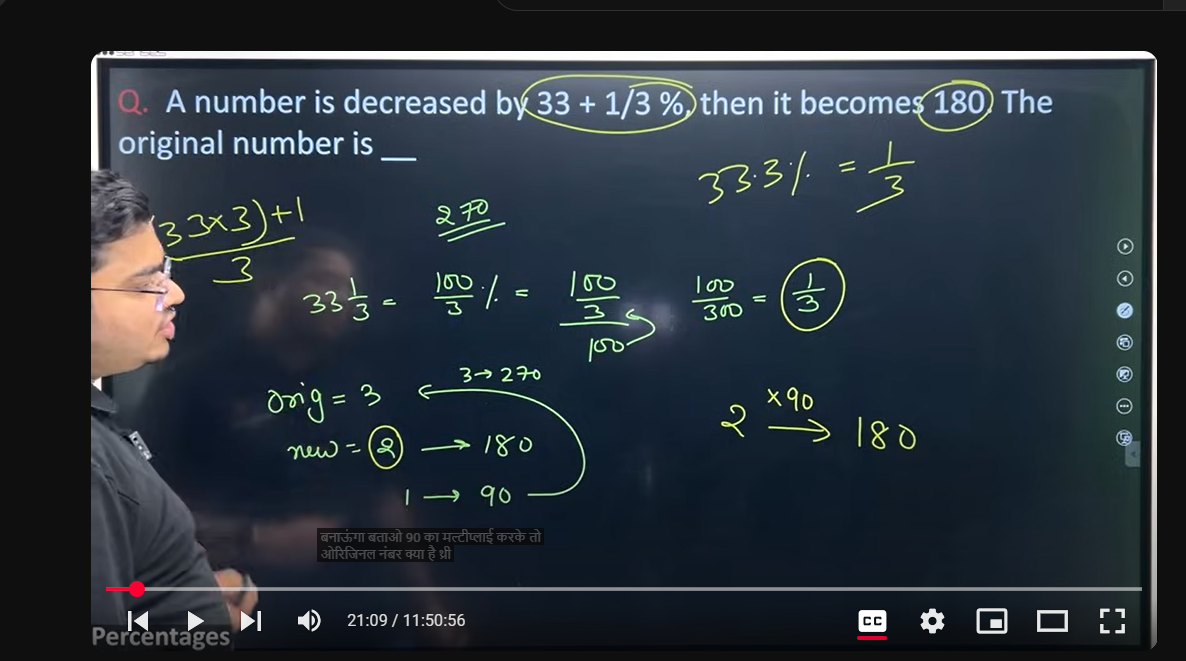 Q. A number is decreased by 33 + 1/3 %, then it becomes 180. The
original number is __
33.3% = 1/3
33×3)+1
3
270
33 1/3 = 100/3 % = 100/3 / 100
100/300 = 1/3
orig = 3
3→270
new = 2 → 180
1 → 90
2 ×90→ 180
बनाऊंगा बताओ 90 का मल्टीप्लाई करके तो
ओरिजिनल नंबर क्या है थ्री
21:09 / 11:50:56
CC
Percentages